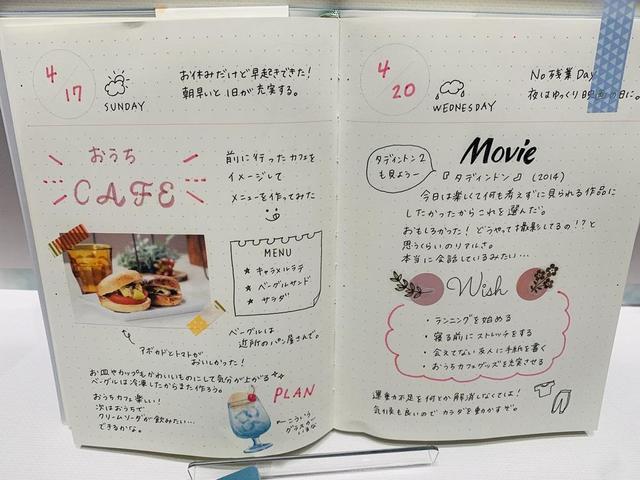 4/17
SUNDAY
お休みだけど早起きできた!
朝早いと1日が充実する。
おうち
CAFE
前に行ったカフェを
イメージして
メニューを作ってみた
MENU
★ キャラメルラテ
★ ベーグルサンド
★ サラダ
ベーグルは
近所のパン屋さんで。
アボカドとトマトが
おいしかった!
お皿やカップもかわいいものにして気分が上がる
ベーグルは冷凍したからまた作ろう。
おうちカフェ楽しい!
次はおうちで
クリームソーダが飲みたい…
できるかな。
PLAN
←こういう
グラスの
4/20
WEDNESDAY
No残業Day
夜はゆっくり映画の日に。
Movie
タディントン2
も見よう〜
『タディントン』(2014)
今日は楽しくて何も考えずに見られる作品に
したかったからこれを選んだ。
おもしろかった!どうやって撮影してるの!?と
思うくらいのリアルさ。
本当に会話しているみたい…
Wish
・ランニングを始める
・寝る前にストレッチをする
・会えてない友人に手紙を書く
・おうちカフェグッズを充実させる
運動不足を何とか解消しなくては!
気候も良いのでカラダを動かすぞ。